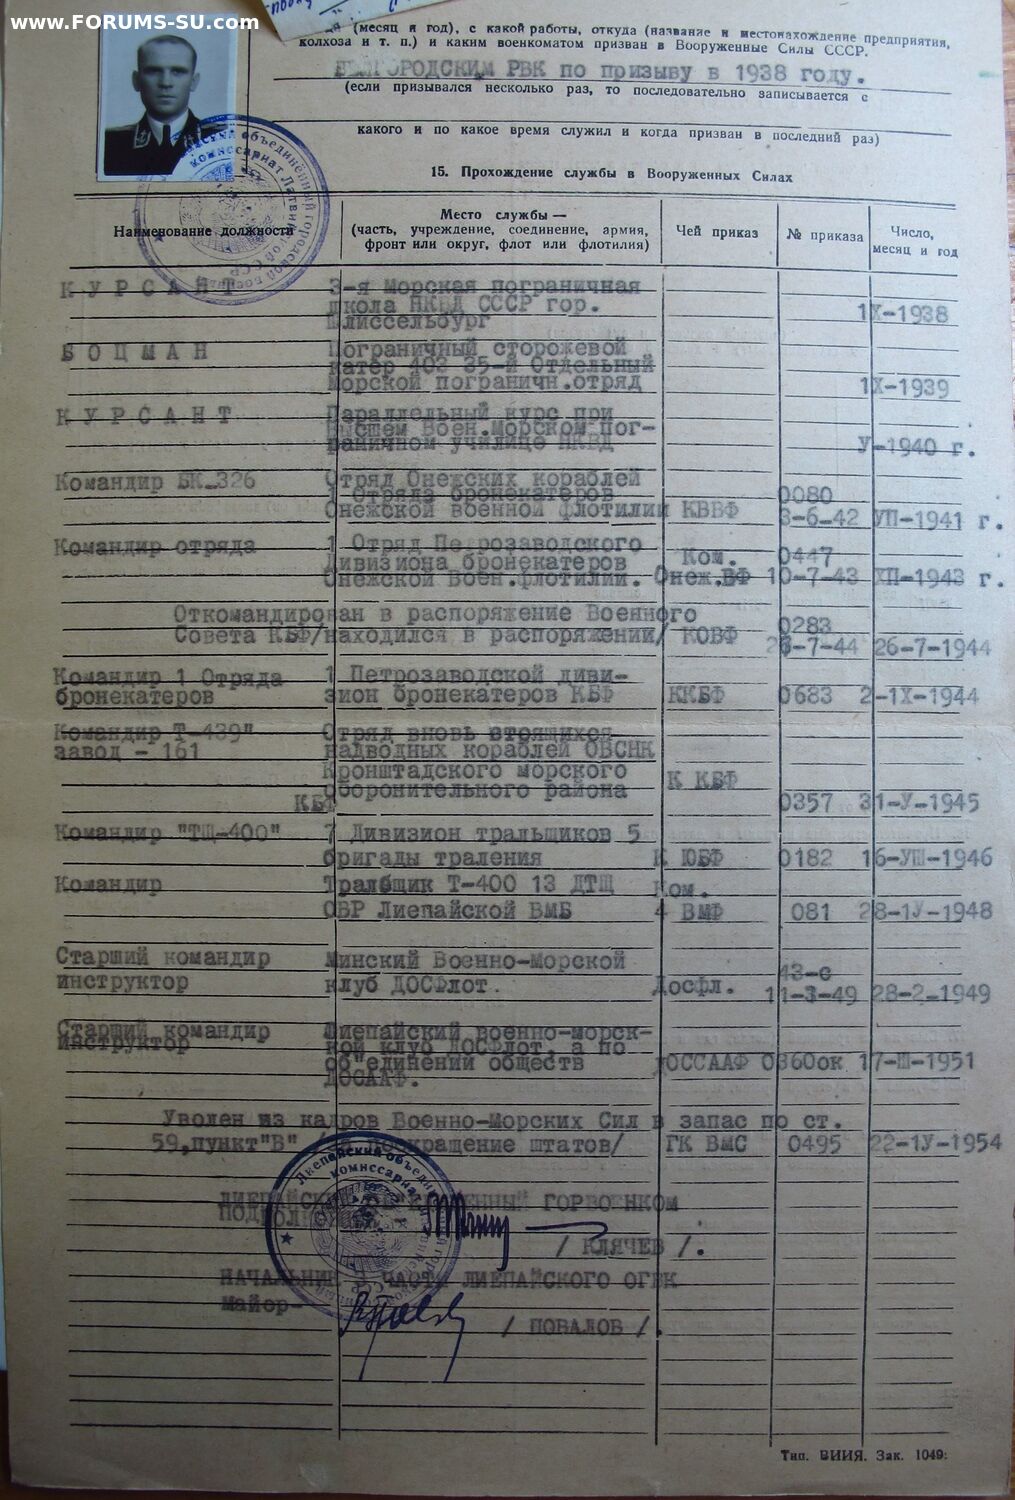 www.FORUMS-SU.com
(месяц и год), с какой работы, откуда (название и местонахождение предприятия,
колхоза и т. п.) и каким военкоматом призван в Вооруженные Силы СССР.
РВК по призыву в 1938 году.
(если призывался несколько раз, то последовательно записывается с
какого и по какое время служил и когда призван в последний раз)
15. Прохождение службы в Вооруженных Силах
Наименование должности
Место службы —
(часть, учреждение, соединение, армия,
фронт или округ, флот или флотилия)
Чей приказ
№ приказа
Число,
месяц и год
К У Р С А Н Т 3-я Морская пограничная
школа НКВД СССР гор.
Шлиссельбург 1Х-1938
Б О Ц М А Н Пограничный сторожевой
катер 403 35-й Отдельный
Морской пограничн.отряд 1Х-1939
К У Р С А Н Т Параллельный курс при
Высшем Воен.Морском пог-
раничном училище НКВД У-1940 г.
Командир БК-326 Отряд Онежских кораблей
1 Отряда бронекатеров 0080
Онежской военной флотилии КВВФ 3-6-42 УП-1941 г.
Командир отряда 1 Отряд Петрозаводского
Дивизиона бронекатеров Ком. 0447
Онежской Воен.флотилии. Онеж.ВФ 10-7-43 ХП-1943 г.
Откомандирован в распоряжение Военного
Совета КБФ/находился в распоряжении/ КОВФ 0283
26-7-44 26-7-1944
Командир 1 Отряда 1 Петрозаводской диви-
бронекатеров зион бронекатеров КБФ ККБФ 0683 2-1Х-1944
Командир Т-439" Отряд вновь строящихся
завод - 161 надводных кораблей ОВСНК
Кронштадского морского К КБФ
Оборонительного района
КБФ 0357 31-У-1945
Командир "ТЩ-400" 7 Дивизион тральщиков 5
бригады траления К ЮБФ 0182 16-УШ-1946
Командир Тральщик Т-400 13 ДТЩ Ком.
ОВР Лиепайской ВМБ 4 ВМФ 081 28-1У-1948
Старший командир Минский Военно-Морской 43-с
инструктор клуб ДОСФлот. Досфл. 11-3-49 28-2-1949
Старший командир Лиепайский военно-морск-
инструктор кой клуб ДОСФлот, а по
об"единении обществ ДОССААФ 0360ок 17-Ш-1951
ДОСААФ.
Уволен из кадров Военно-Морских Сил в запас по ст.
59,пункт"В" сокращение штатов/ ГК ВМС 0495 22-1У-1954
ЛИЕПАЙСКИЙ ОБЪЕДИНЕННЫЙ ГОРВОЕНКОМ
ПОДПОЛКОВНИК
/ КЛЯЧЕВ /.
НАЧАЛЬНИК ЧАСТИ ЛИЕПАЙСКОГО ОГВК
Майор-
/ ПОВАЛОВ /.
Тип. ВИИЯ. Зак. 1049